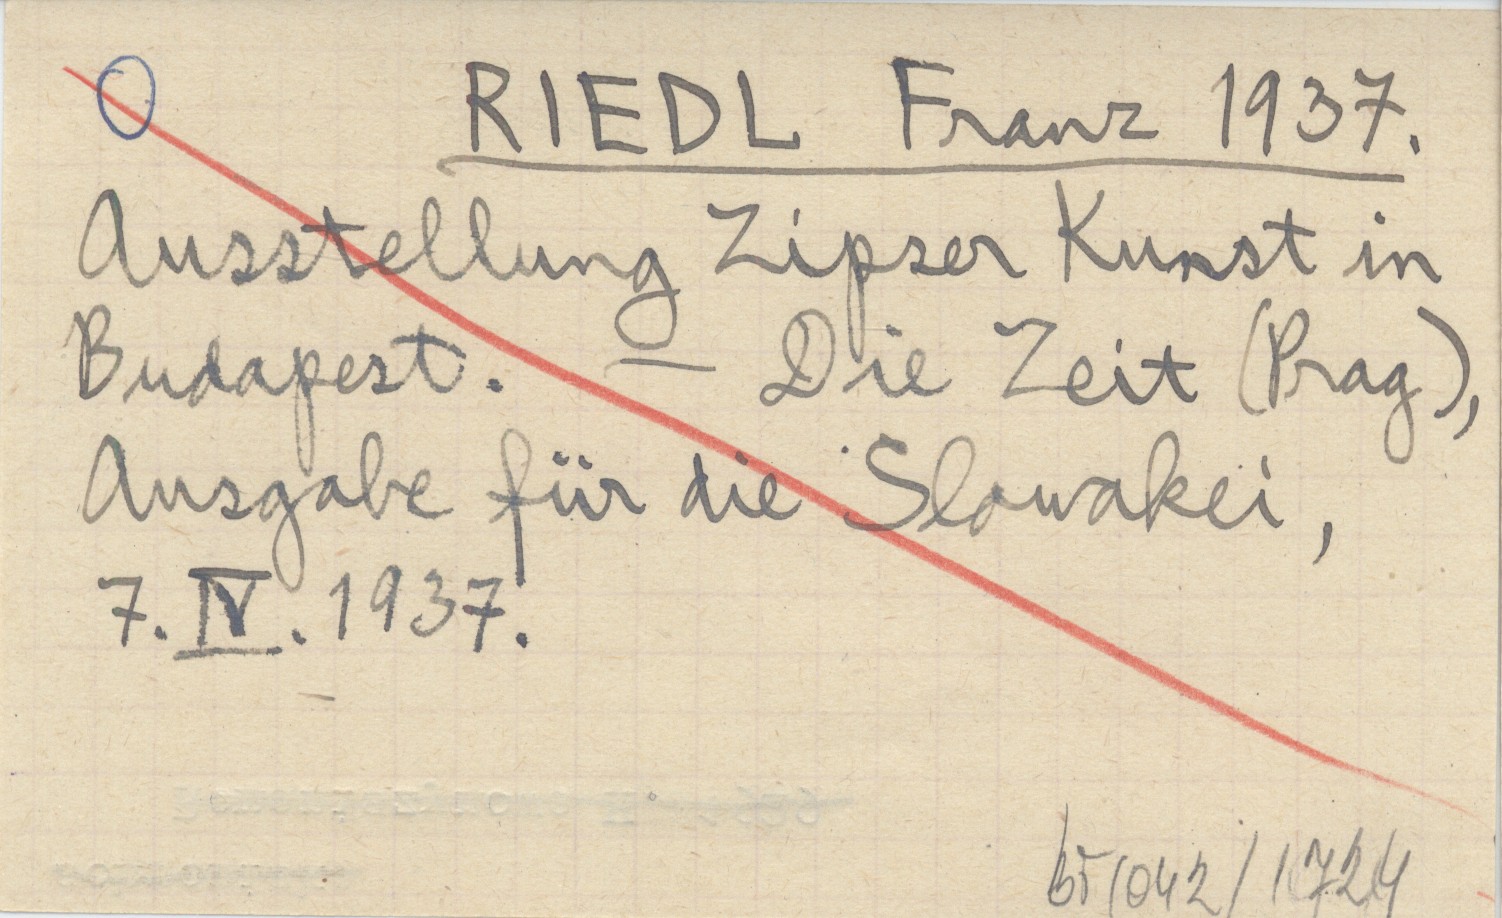 RIEDL Franz 1937.
Ausstellung Zipser Kunst in
Budapest. — Die Zeit (Prag),
Ausgabe für die Slowakei,
7. IV. 1937.
1042/1724